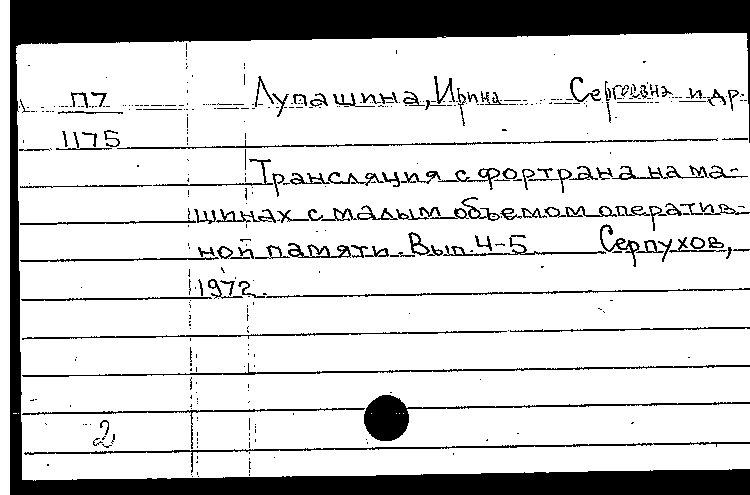 П7 Лупашина, Ирина Сергеевна и др.
1175
Трансляция с фортрана на ма-
шинах с малым объемом оператив-
ной памяти. Вып. 4-5 Серпухов,
1972.
2